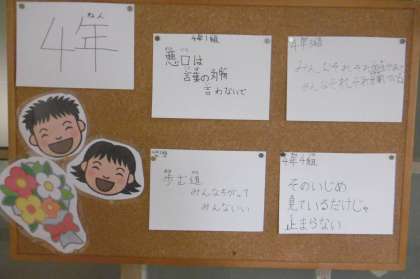 4年
ねん
4年1組
悪口は
言葉の刃物
言わないで
4年3組
みんなそれぞれ
みんなそれぞれ
歩む道
みんなちがって
みんないい
4年4組
そのいじめ
見ているだけじゃ
止まらない